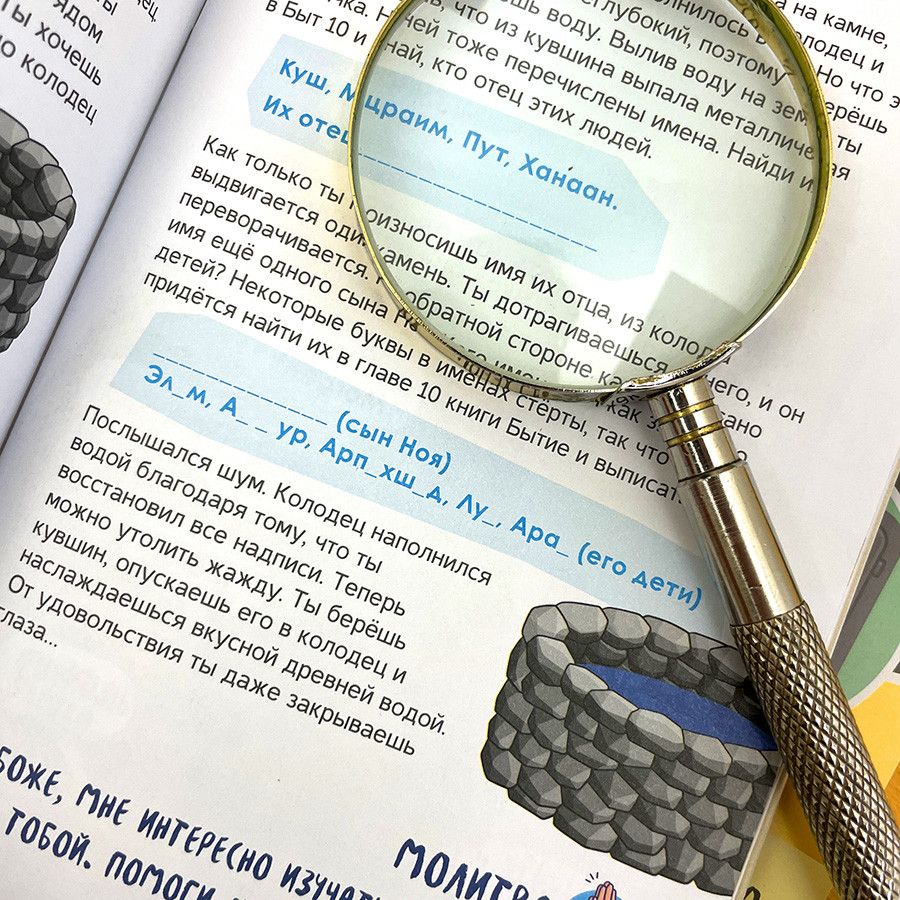 ядом
ты хочешь
колодец
на камне,
глубокий, поэтому
воду. Вылив воду на
что из кувшина выпала
в Быт 10 и ней тоже перечислены имена. Найди и
кто отец этих людей.
Куш, Мицраим, Пут, Ханаан.
Их отец _ _ _ _ _ _ _ _ _ _ _ _
Как только ты произносишь имя их отца, из
выдвигается один камень. Ты дотрагиваешься до него, и он
переворачивается. На обратной стороне
имя ещё одного сына
детей? Некоторые буквы в именах стёрты, так что
придётся найти их в главе 10 книги Бытие и выписать.
_ _ _ _ _ _ _ _ _ _ (сын Ноя)
Эл_м, А_ _ур, Арп_хш_д, Лу_, Ара_ (его дети)
Послышался шум. Колодец наполнился
водой благодаря тому, что ты
восстановил все надписи. Теперь
можно утолить жажду. Ты берёшь
кувшин, опускаешь его в колодец и
наслаждаешься вкусной древней водой.
От удовольствия ты даже закрываешь
глаза...
МОЛИТВА
БОЖЕ, МНЕ ИНТЕРЕСНО
ТОБОЙ. ПОМОГИ